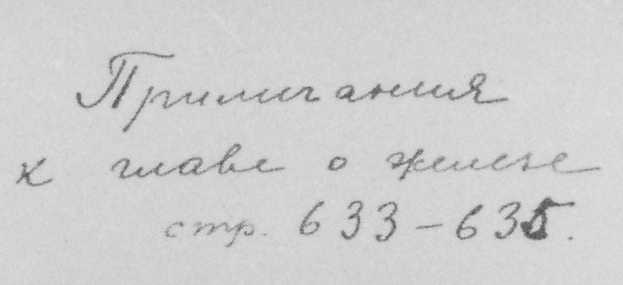 Примичания
к главе о железе
стр. 633-635.